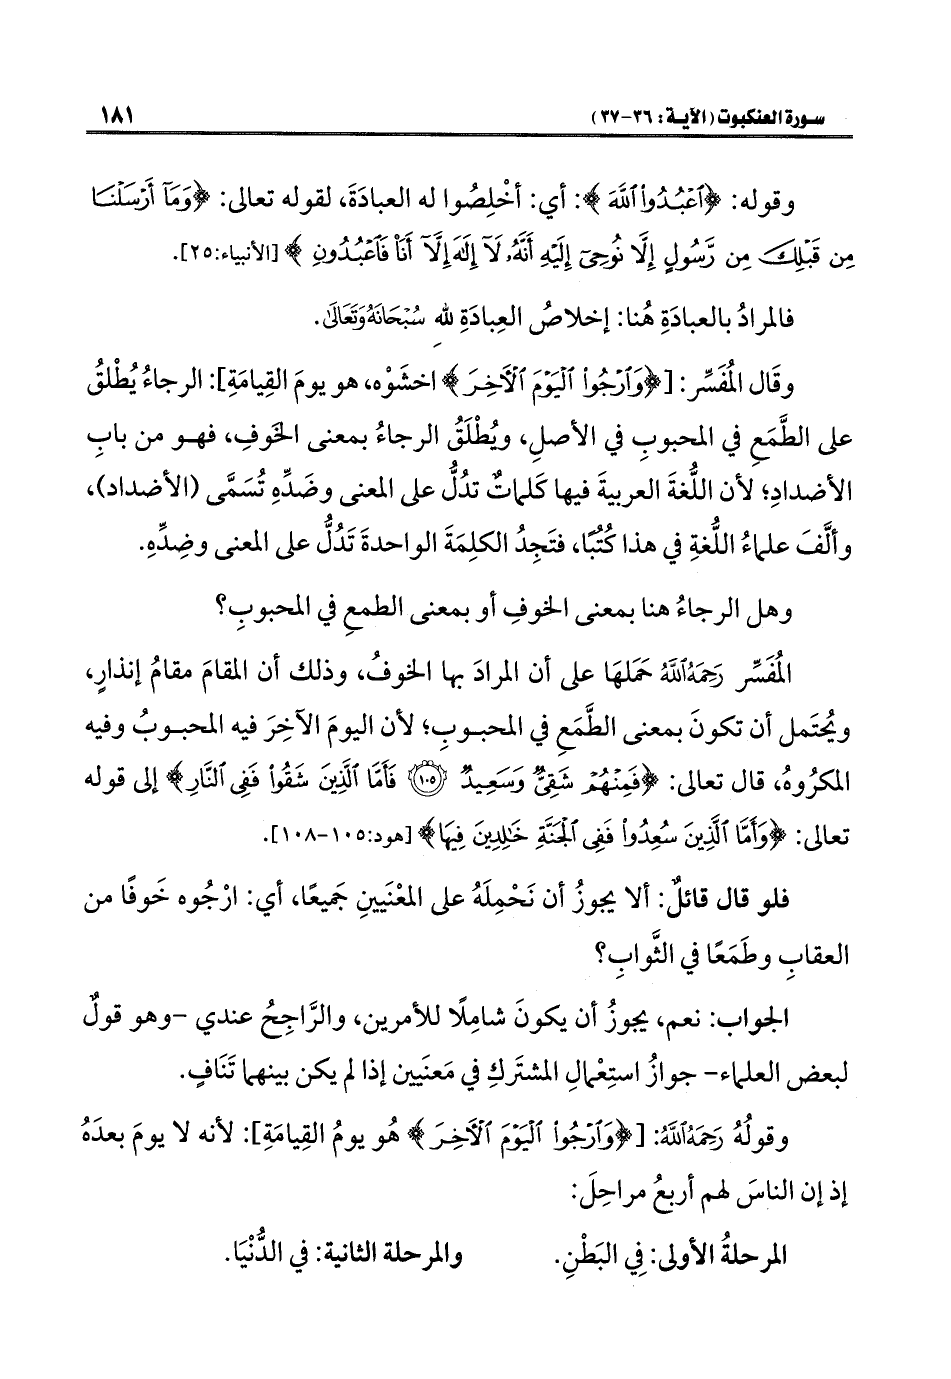 سورة العنكبوت (الآية: ٣٦-٣٧) ١٨١
وقوله: ﴿ٱعۡبُدُواْ ٱللَّهَ﴾: أي: أخْلِصُوا له العبادَةَ، لقوله تعالى: ﴿وَمَآ أَرۡسَلۡنَا
مِن قَبۡلِكَ مِن رَّسُولٍ إِلَّا نُوحِىٓ إِلَيۡهِ أَنَّهُۥ لَآ إِلَٰهَ إِلَّآ أَنَا۠ فَٱعۡبُدُونِ﴾ [الأنبياء:٢٥].
فالمرادُ بالعبادَةِ هُنا: إخلاصُ العِبادَةِ لله سُبْحَانَهُ وَتَعَالَى.
وقَال المُفَسِّر: [﴿وَٱرۡجُواْ ٱلۡيَوۡمَ ٱلۡأٓخِرَ﴾ اخشَوْه، هو يومَ القِيامَةِ]: الرجاءُ يُطْلقُ
على الطَّمَعِ في المحبوبِ في الأصلِ، ويُطْلَقُ الرجاءُ بمعنى الخَوفِ، فهو من بابِ
الأضدادِ؛ لأن اللُّغةَ العربيةَ فيها كَلماتٌ تدُلُّ على المعنى وضَدِّهِ تُسَمَّى (الأضداد)،
وألَّفَ علماءُ اللُّغةِ في هذا كُتُبًا، فتَجِدُ الكلِمَةَ الواحدةَ تَدُلُّ على المعنى وضِدِّهِ.
وهل الرجاءُ هنا بمعنى الخوفِ أو بمعنى الطمعِ في المحبوبِ؟
المُفَسِّر رَحِمَهُ ٱللَّهُ حَمَلَها على أن المرادَ بها الخوفُ، وذلك أن المقامَ مقامُ إنذارٍ،
ويُحتَمل أن تكونَ بمعنى الطَّمَعِ في المحبوبِ؛ لأن اليومَ الآخِرَ فيه المحبوبُ وفيه
المكرُوهُ، قال تعالى: ﴿فَمِنۡهُمۡ شَقِىٌّ وَسَعِيدٌ ١٠٥ فَأَمَّا ٱلَّذِينَ شَقُواْ فَفِى ٱلنَّارِ﴾ إلى قوله
تعالى: ﴿وَأَمَّا ٱلَّذِينَ سُعِدُواْ فَفِى ٱلۡجَنَّةِ خَٰلِدِينَ فِيهَا﴾ [هود:١٠٥-١٠٨].
فلو قال قائلٌ: ألا يجوزُ أن نَحْمِلَهُ على المعْنَيينِ جَميعًا، أي: ارْجُوه خَوفًا من
العقابِ وطَمَعًا في الثَّوابِ؟
الجواب: نعم، يجوزُ أن يكونَ شاملًا للأمرين، والرَّاجِحُ عندي -وهو قولٌ
لبعض العلماء- جوازُ استِعْمالِ المشتركِ في مَعنَيين إذا لم يكن بينهما تَنَافٍ.
وقولُهُ رَحِمَهُ ٱللَّهُ: [﴿وَٱرۡجُواْ ٱلۡيَوۡمَ ٱلۡأٓخِرَ﴾ هُو يومُ القِيامَةِ]: لأنه لا يومَ بعدَهُ
إذ إن الناسَ لهم أربعُ مراحِلَ:
المرحلةُ الأولى: فِي البَطْنِ. والمرحلة الثانية: في الدُّنْيَا.